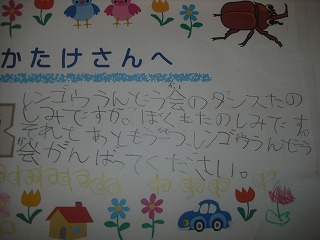 かたけさんへ
レンゴウうんどう会のダンスたの
しみですか。ぼくもたのしみです。
それともあともう一つレンゴウうんどう
会がんばってください。